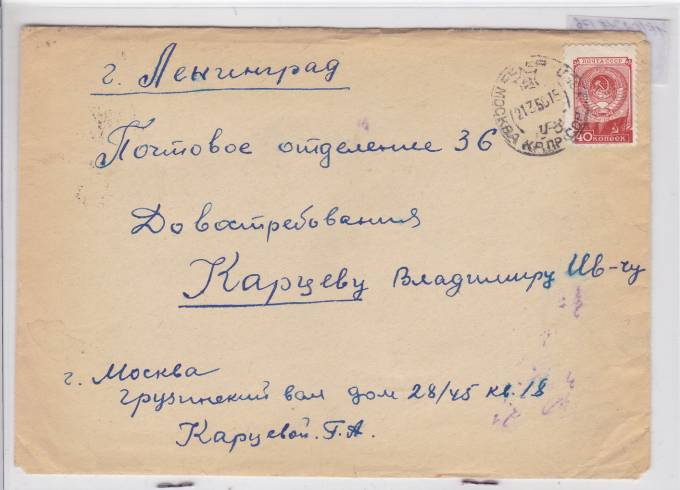 г. Ленинград
Почтовое отделение 36
Довостребования
Карцеву Владимиру Ив-чу
г. Москва
грузинский вал дом 28/45 кв. 18
Карцевой. Г. А.
ПОЧТА СССР
40 КОПЕЕК
МОСКВА
21 7 55 15